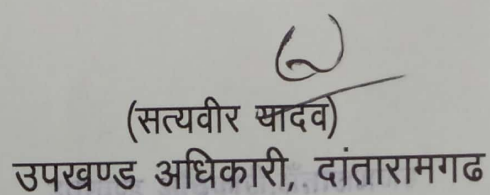 (सत्यवीर यादव)
उपखण्ड अधिकारी, दांतारामगढ